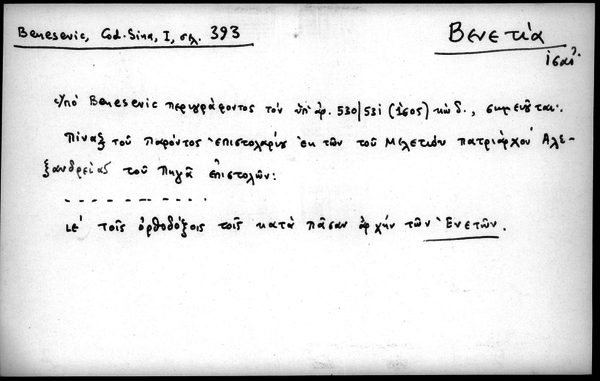 Benesevic, Cod. Sina, I, σελ. 393
Βενετία
Ὑπὸ Benesevic περιγράφοντος τὸν ὑπ' ἀρ. 530/531 (1605) κώδ., σημειοῦται:
Πίναξ τοῦ παρόντος ἐπιστολαρίου ἐκ τῶν τοῦ Μελετίου πατριάρχου Ἀλε-
ξανδρείας τοῦ Πηγᾶ ἐπιστολῶν:
- - - - - - - - - -
ιε' τοῖς ὀρθοδόξοις τοῖς κατὰ πᾶσαν ἀρχὴν τῶν Ἐνετῶν.